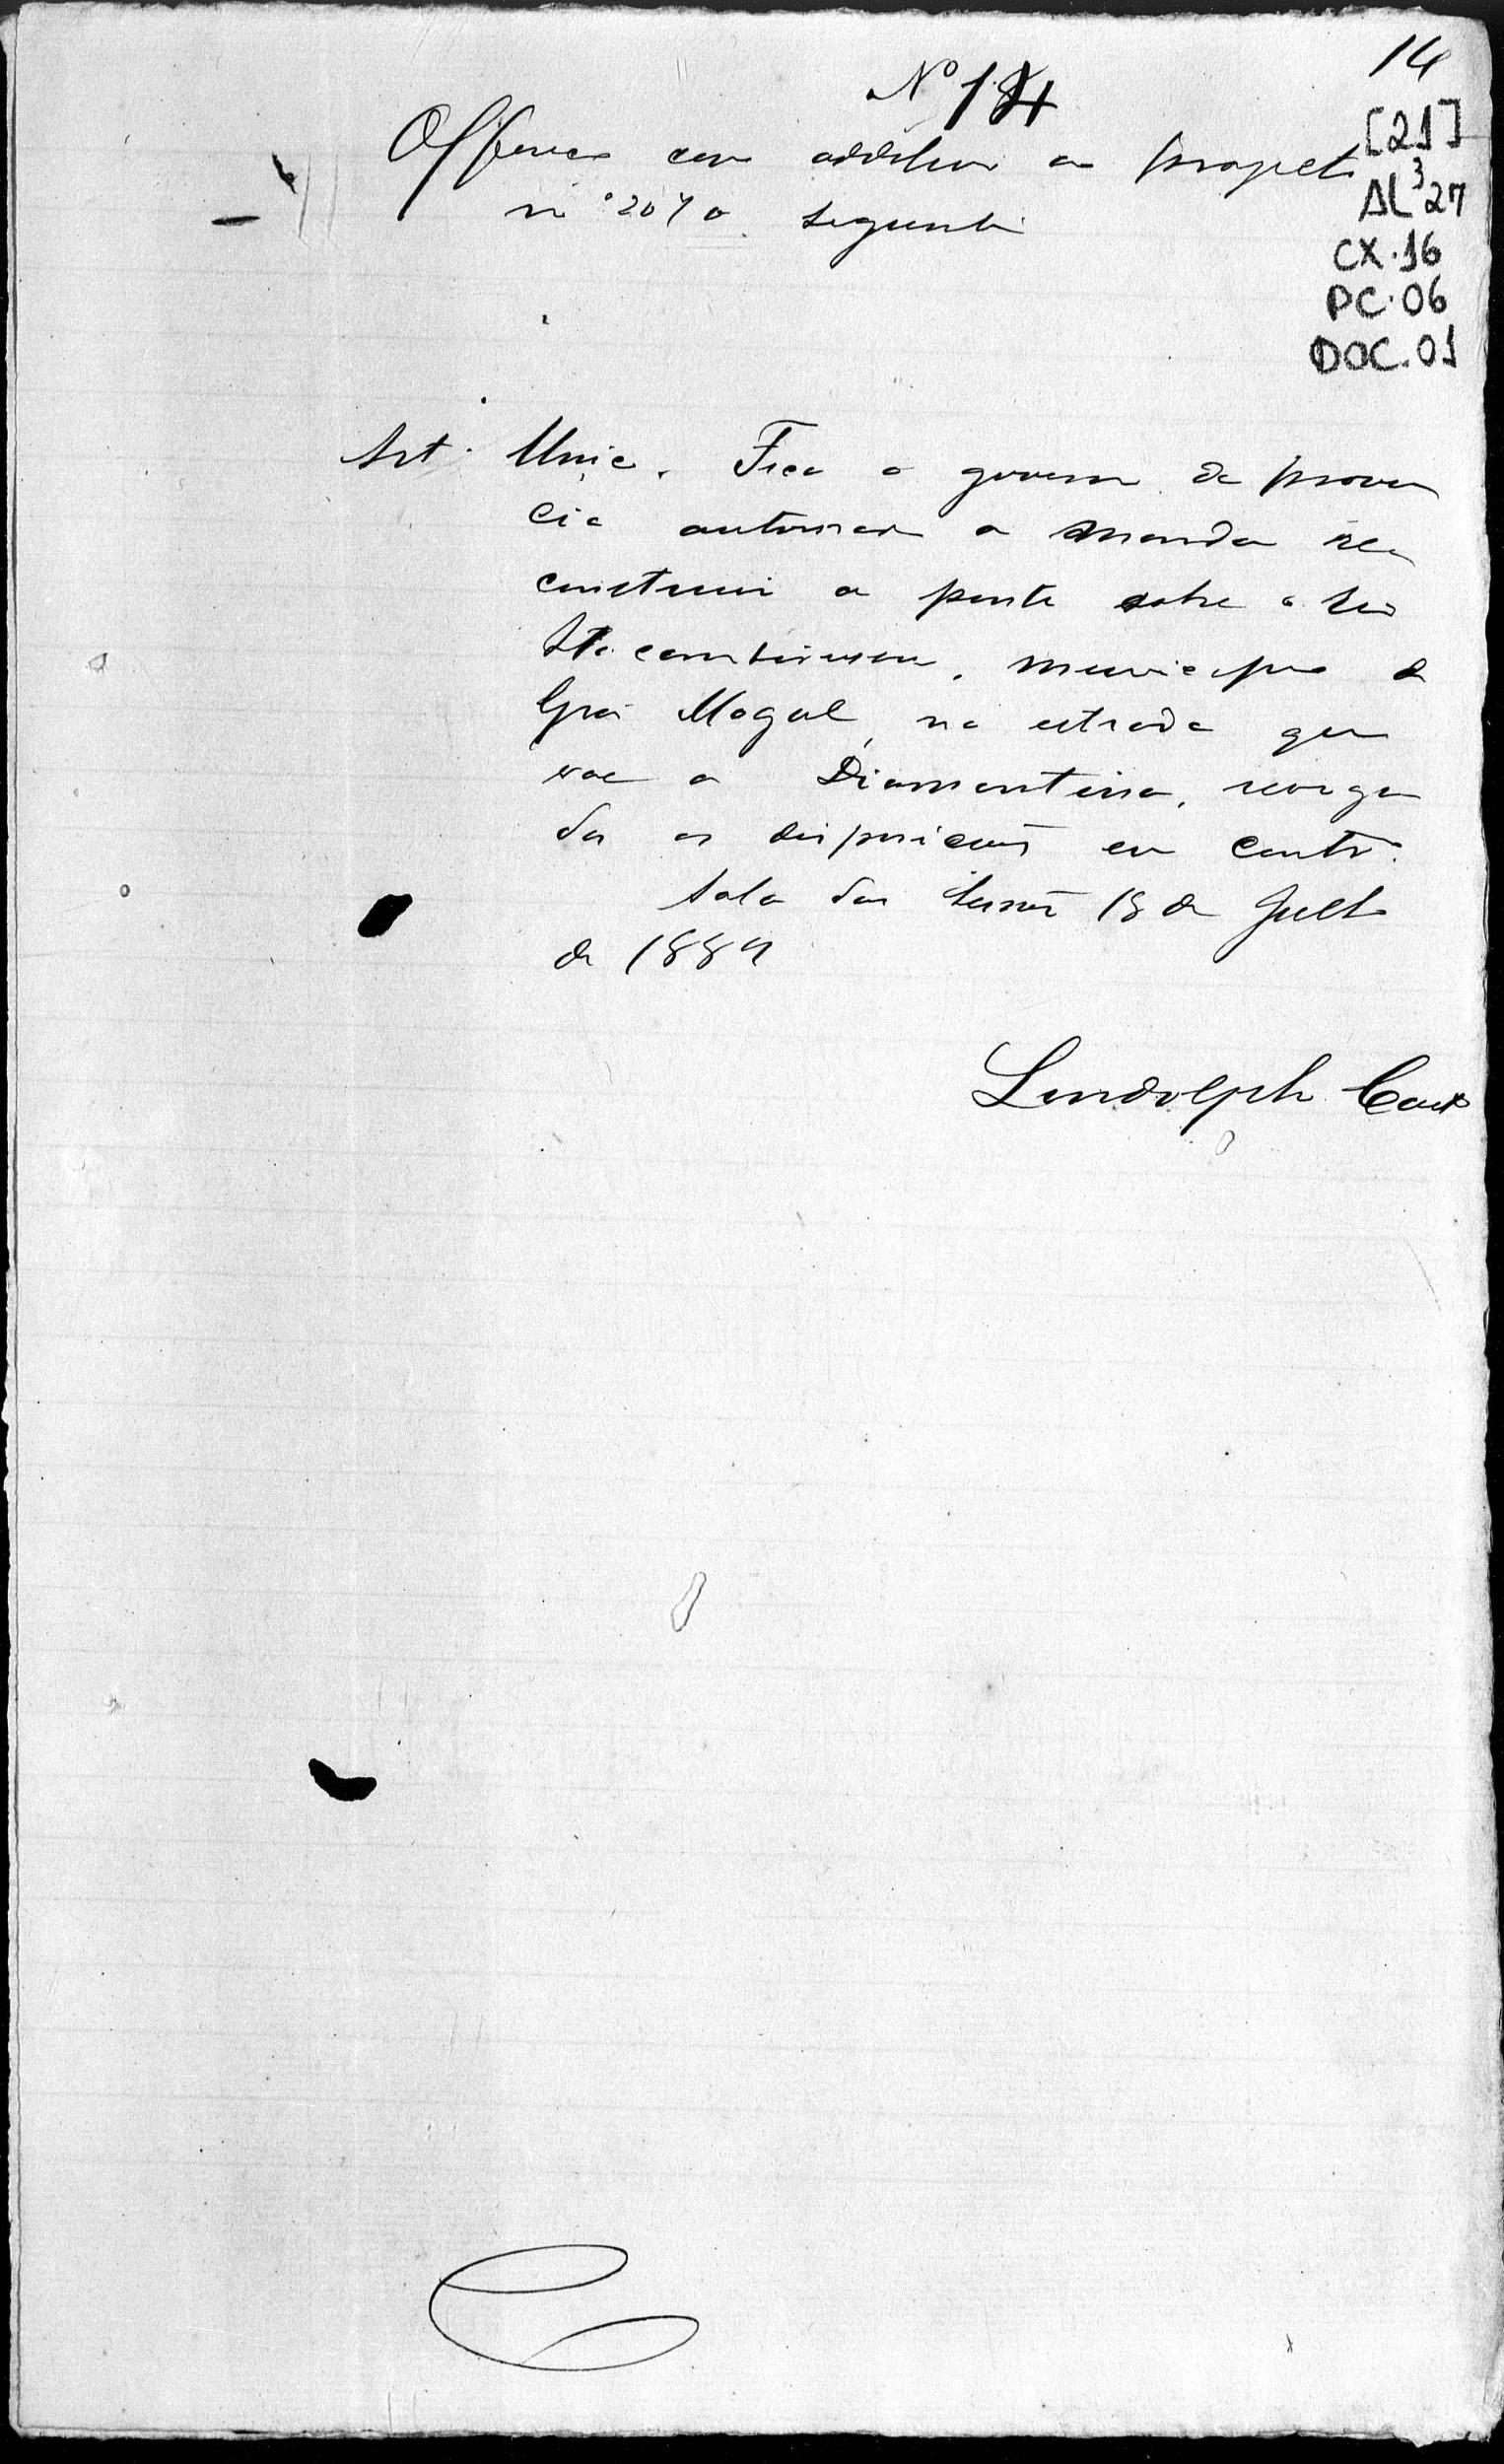 14
Nº 14
[21]
AL³ 27
CX.16
PC.06
DOC.01
Offereço como additivo ao projecto
nº 207 o seguinte
Art. Unico. Fica o governo da provin
cia autorisado a mandar re
construir a ponte sobre o rio
Itacambirussu, municipio de
Grão Mogol, na estrada que
vae a Diamantina, revoga
das as disposições em contrº.
Sala das Sessões 18 de Julho
de 1889
Lindolpho Caet